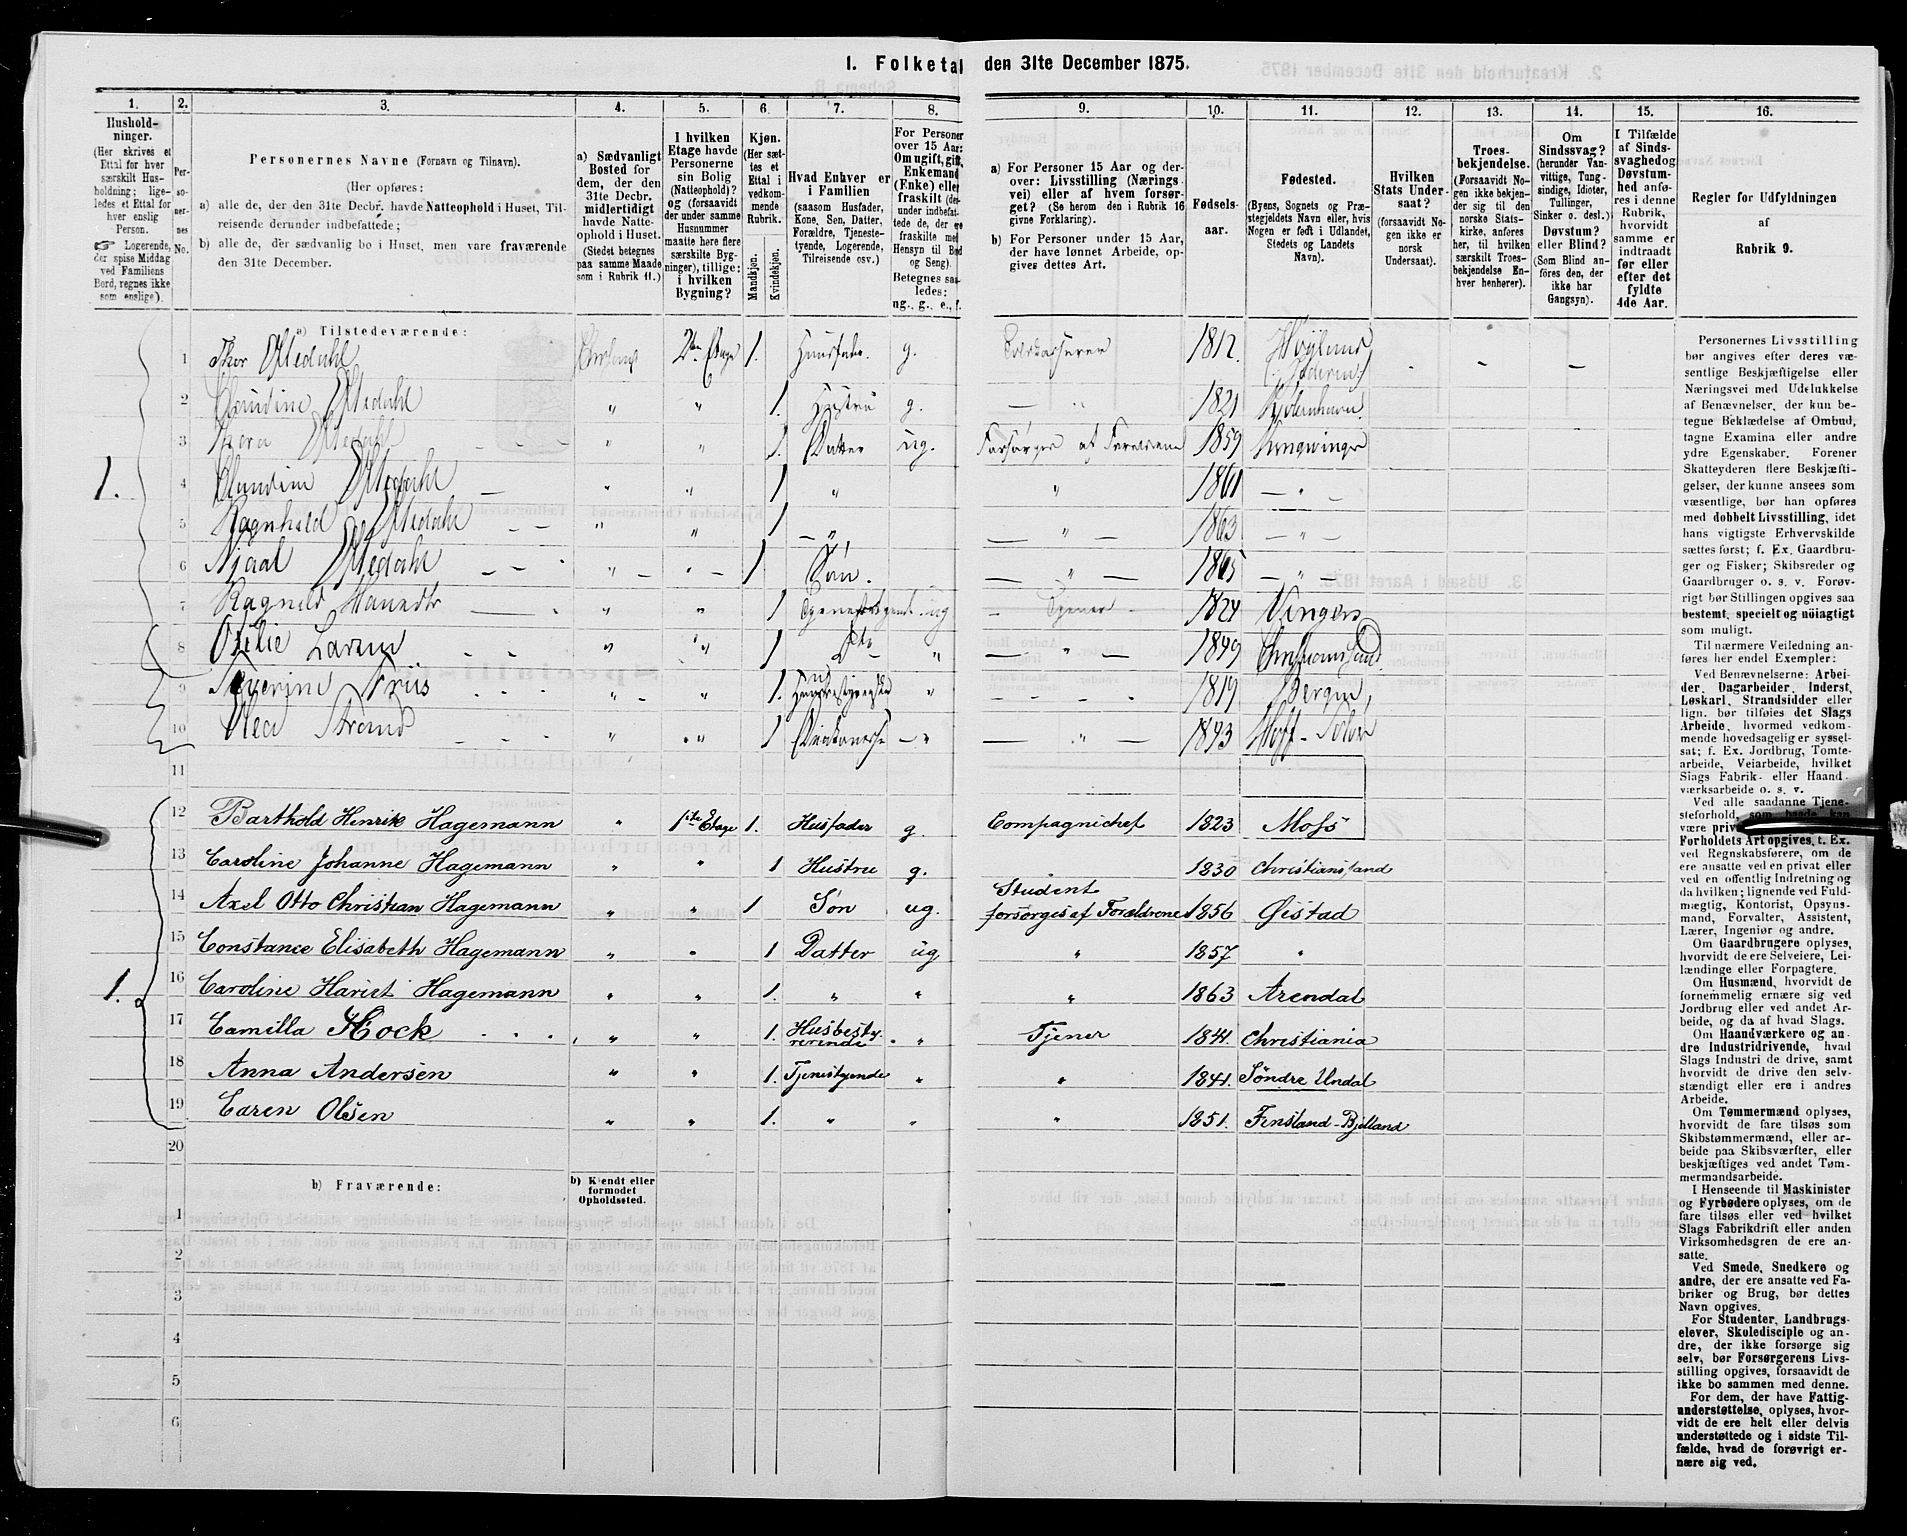 1. Folketal den 31te December 1875.
1. 2. 3. 4. 5. 6. 7. 8. 9. 10. 11. 12. 13. 14. 15. 16.
Hushold-
ninger.
(Her skrives et
Ettal for hver
særskilt Hus-
holdning; lige-
ledes et Ettal for
hver enslig
Person.
☞ Logerende,
der spise Middag
ved Familiens
Bord, regnes ikke
som enslige).
Per-
so-
ner-
nes
No.
Personernes Navne (Fornavn og Tilnavn).
(Her opføres:
a) alle de, der den 31te Decbr. havde Natteophold i Huset, Til-
reisende derunder indbefattede;
b) alle de, der sædvanlig bo i Huset, men vare fraværende
den 31te December.
a) Sædvanligt
Bosted for
dem, der den
31te Decbr.
midlertidigt
havde Natte-
ophold i Huset.
(Stedet betegnes
paa samme Maade
som i Rubrik 11.)
I hvilken
Etage havde
Personerne
sin Bolig
(Natteophold)?
og (forsaavidt
der under samme
Husnummer
maatte høre flere
særskilte Byg-
ninger), tillige:
i hvilken
Bygning?
Kjøn.
(Her sæt-
tes et
Ettal i
vedkom-
mende
Rubrik.
Mandkjøn.
Kvindekjøn.
Hvad Enhver er
i Familien
(saasom Husfader,
Kone, Søn, Datter,
Forældre, Tjeneste-
tyende, Logerende,
Tilreisende osv.)
For Personer
over 15 Aar:
Om ugift, gift,
Enkemand
(Enke) eller
fraskilt
Betegnes saa-
ledes:
ug., g., e., f.
a) For Personer 15 Aar og der-
over: Livsstilling (Nærings-
vei) eller af hvem forsør-
get? (Se herom den i Rubrik 16
givne Forklaring).
b) For Personer under 15 Aar,
der have lønnet Arbeide, op-
gives dettes Art.
Fødsels-
aar.
Fødested.
(Byens, Sognets og Præ-
stegjeldets Navn eller, hvis
Nogen er født i Udlandet,
Stedets og Landets
Navn).
Hvilken
Stats Under-
saat?
(forsaavidt No-
gen ikke er
norsk
Undersaat).
Troes-
bekjendelse.
(Forsaavidt No-
gen ikke bekjen-
der sig til den
norske Stats-
kirke, anføres
her, til hvilken
særskilt Troes-
bekjendelse En-
hver henhører).
Om
Sindssvag?
(herunder Van-
vittige, Tung-
sindige, Idioter,
Tullinger,
Sinker o. desl.)
Døvstum?
eller Blind?
(Som Blind an-
føres den, der
ikke har
Gangsyn).
I Tilfælde
af Sinds-
svaghed og
Døvstum-
hed anfø-
res i denne
Rubrik,
hvorvidt
samme er
indtraadt
før eller
efter det
fyldte
4de Aar.
Regler for Udfyldningen
af
Rubrik 9.
a) Tilstedeværende:
1 Thor Oftedahl 2den Etage 1. Huusfader g. 1812.
2 Oftedahl " " 1. Hustru g. — " 1821
3 Thora Oftedahl " " 1. Datter ug. Forsørges af Forældrene 1859 Kongsvinger
1.
4 Oftedahl " " 1 " " 1861 — " —
5 Ragnhild Oftedahl " " 1 — " — " — 1863 — " —
6 Njaal Oftedahl " — " — 1 Søn. — " — 1865 — " —
7 Ragnild " " 1 ug — Tjener — 1824 Vinger
8 Larsen " " 1 Dto " — " — 1849 Christiansund
9 Severine Friis " " 1. " — " — 1819 Bergen
10 Olea Strand " " 1 — " — " — 1843 Hoff - Soløer
11
12 Barthold Henrik Hagemann " 1ste Etage 1. Husfader g. Compagnichef 1823 Moss
13 Caroline Johanne Hagemann " " 1 Hustru g. 1830 Christianssand
14 Axel Otto Christian Hagemann " " 1 Søn ug. Student
forsørges af Forældrene 1856 Øiestad
15 Constance Elisabeth Hagemann " " 1 Datter ug " 1857 "
1.
16 Caroline Hariet Hagemann " " 1. " " " 1863 Arendal
17 Camilla Hock " " 1. Husbesty-
rerende " Tjener 1844. Christiania
18 Anna Andersen " " 1. Tjenestyende " " 1841. Søndre Undal
19 Caren Olsen " " 1. " " " 1851. Finsland - Bjelland
20
b) Fraværende:
b) Kjendt eller
formodet
Opholdssted.
1
2
3
4
5
6
Personernes Livsstilling
bør angives efter deres væ-
sentlige Beskjæftigelse eller
Næringsvei med Udelukkelse
af Benævnelser, der kun be-
tegne Beklædelse af Ombud,
tagne Examina eller andre
ydre Egenskaber. Forener
Skatteyderen flere Beskjæfti-
gelser, der kunne ansees som
væsentlige, bør han opføres
med dobbelt Livsstilling, idet
hans vigtigste Erhvervskilde
sættes først; f. Ex. Gaardbru-
ger og Fisker; Skibsreder og
Gaardbruger o. s. v. Forøv-
rigt bør Stillingen opgives saa
bestemt, specielt og nøiagtigt
som muligt.
Til nærmere Veiledning an-
føres her endel Exempler:
Ved Benævnelserne: Arbei-
der, Dagarbeider, Inderst,
Løskarl, Strandsidder eller
lign. bør tilføies det Slags
Arbeide, hvormed vedkom-
mende hovedsagelig er syssel-
sat; f. Ex. Jordbrug, Tomte-
arbeide, Veiarbeide, hvilket
Slags Fabrik- eller Haand-
værksarbeide o. s. v.
Ved alle saadanne Tjene-
steforhold, som baade kan
være
Forholdets Art opgives, t. Ex.
ved Regnskabsførere, om de
ere ansatte ved en privat eller
ved en offentlig Indretning og
da hvilken; lignende ved Fuld-
mægtig, Kontorist, Opsyns-
mand, Forvalter, Assistent,
Lærer, Ingeniør og andre.
Om Gaardbrugere oplyses,
hvorvidt de ere Selveiere, Lei-
lændinge eller Forpagtere.
Om Husmænd, hvorvidt de
fornemmelig ernære sig ved
Jordbrug eller ved andet Ar-
beide, og da af hvad Slags.
Om Haandværkere og an-
dre Industridrivende, hvad
Slags Industri de drive, samt
hvorvidt de drive den selv-
stændigt eller ere i andres
Arbeide.
Om Tømmermænd oplyses,
hvorvidt de fare tilsøs som
Skibstømmermænd, eller ar-
beide paa Skibsværfter, eller
beskjæftiges ved andet Tøm-
mermandsarbeide.
I Henseende til Maskinister
og Fyrbødere oplyses, om de
fare tilsøs eller ved hvilket
Slags Fabrikdrift eller anden
Virksomhedsgren de ere an-
satte.
Ved Smede, Snedkere og
andre, der ere ansatte ved Fa-
briker og Brug, bør dettes
Navn opgives.
For Studenter, Landbrugs-
elever, Skoledisciple og an-
dre, der ikke forsørge sig
selv, bør Forsørgerens Livs-
stilling opgives, forsaavidt de
ikke bo sammen med denne.
For dem, der have Fattig-
understøttelse, oplyses, hvor-
vidt de ere helt eller delvis
understøttede og i sidste Til-
fælde, hvad de forøvrigt er-
nære sig ved.